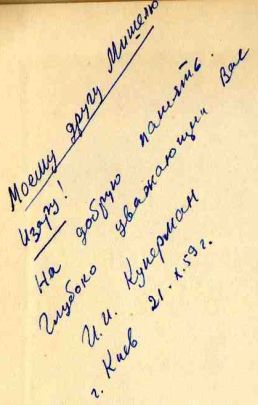 Моему другу Мишелю
Изару!
На добрую память.
Глубоко уважающий Вас
И. И. Куперман
г. Киев 21.X.59 г.